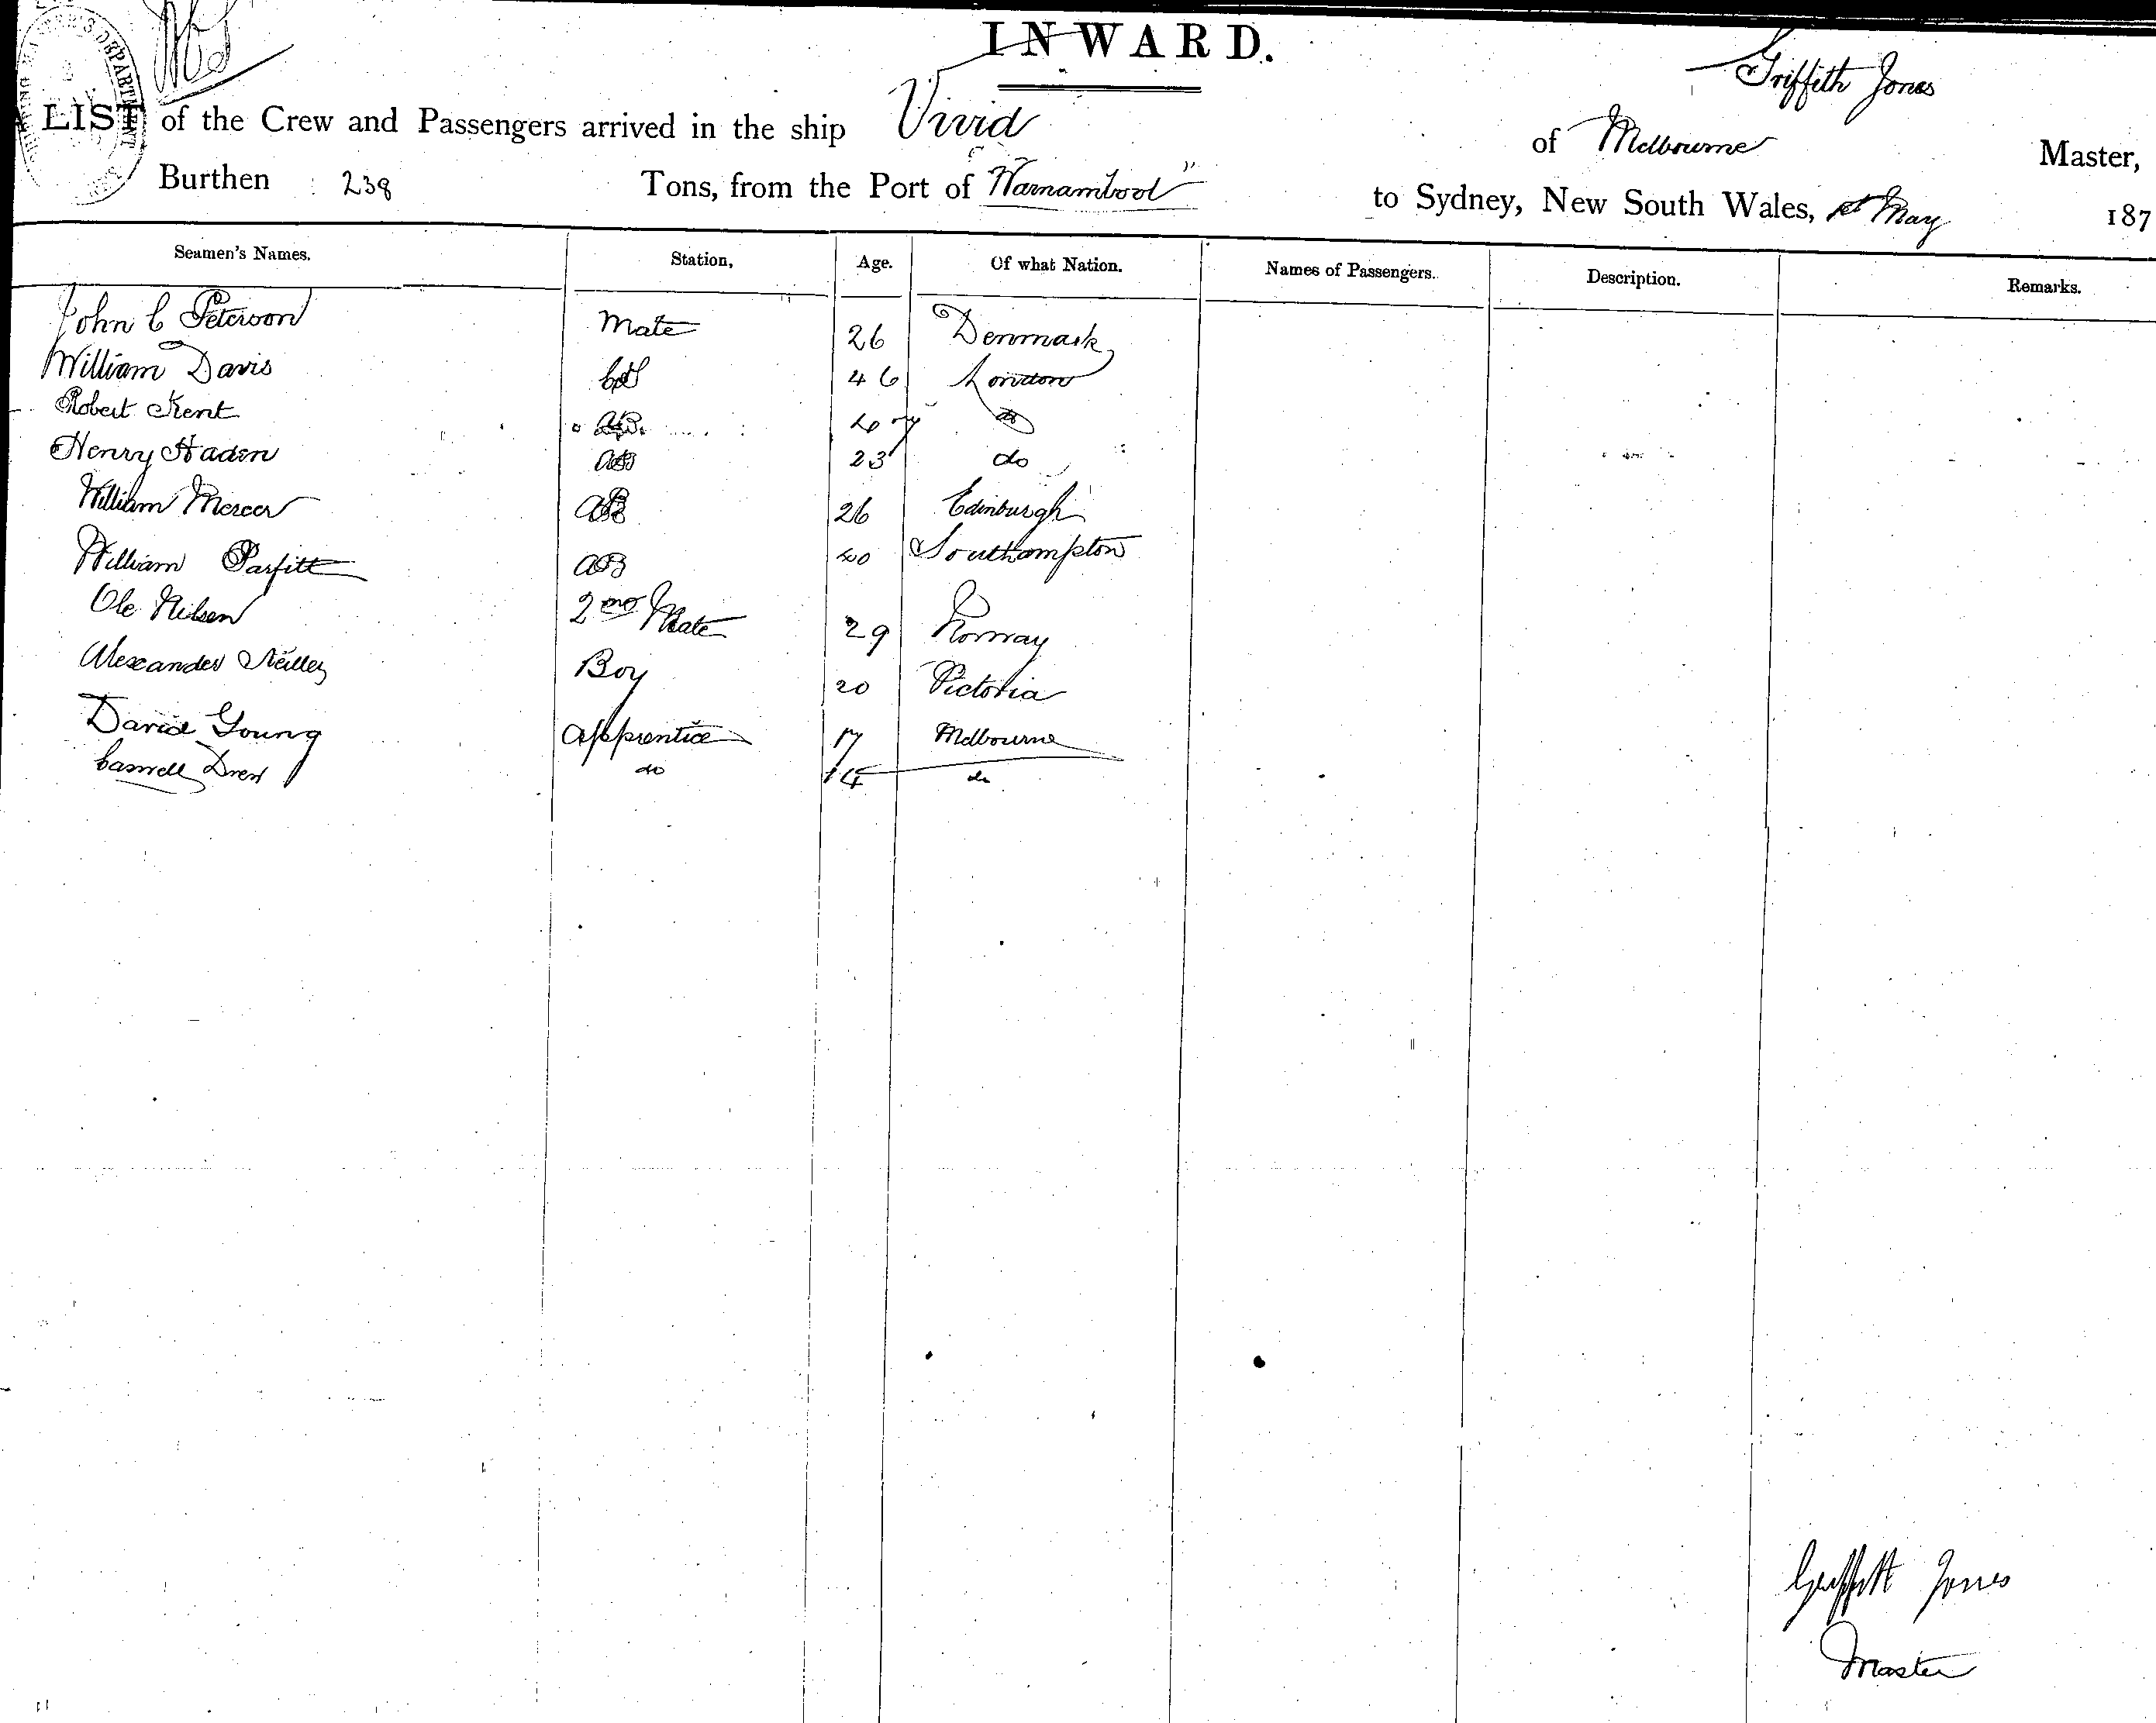 INWARD.
Griffith Jones
LIST of the Crew and Passengers arrived in the ship Vivid of Melbourne Master,
Burthen 238 Tons, from the Port of Warnambool to Sydney, New South Wales, May 187
Seamen's Names. Station, Age. Of what Nation. Names of Passengers. Description. Remarks.
John C Peterson Mate 26 Denmark
William Davis 46 London
Robert Kent AB. 47 do
Henry Haden AB 23 do
William Mercer AB 26 Edinburgh
William Parfitt AB 40 Southampton
Ole Nilsen 2nd Mate 29 Norway
Alexander Boy 20 Victoria
David Young apprentice 17 Melbourne
Caswell Drew do 14 do
Griffith Jones
Master